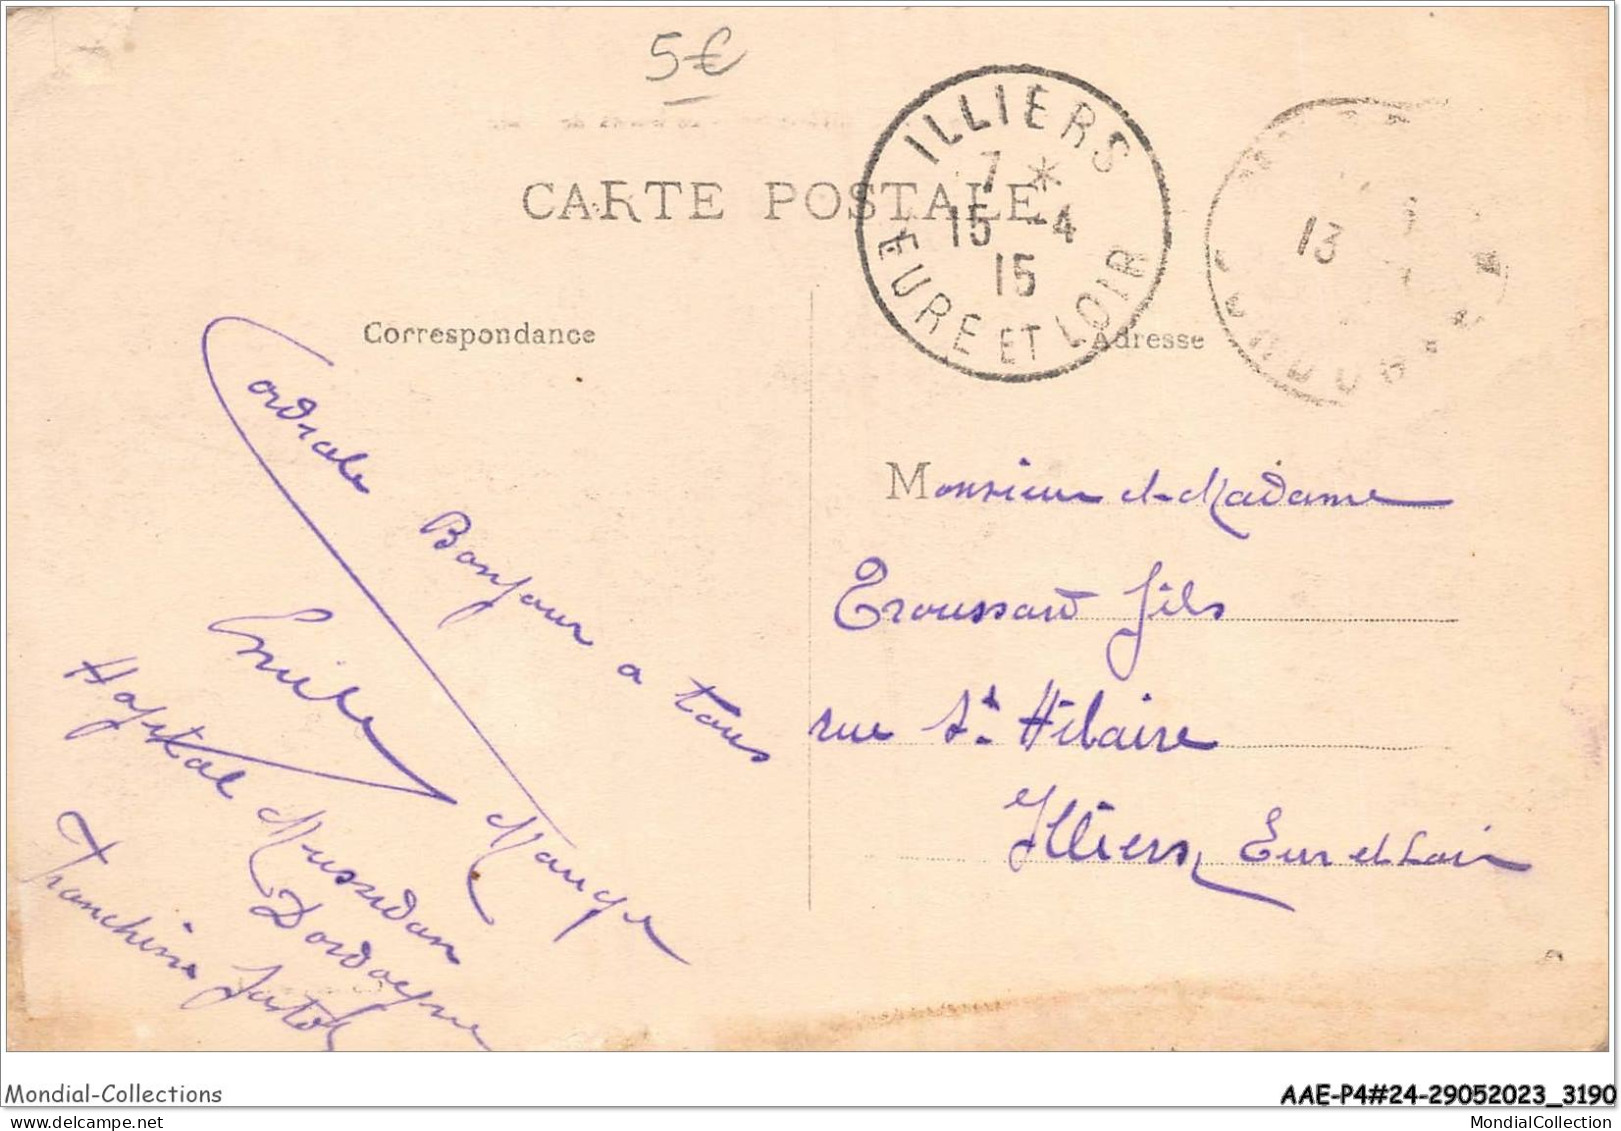 5€
CARTE POSTALE
ILLIERS
7 *
15 -4
15
EURE ET LOIR
13
Correspondance
Adresse
Cordiale Bonjour a tous
Emile Mauge
Hopital Mussidan
Dordogne
Monsieur et Madame
Troussard fils
rue St Hilaire
Illiers Eur et Loir
Mondial-Collections
AAE-P4#24-29052023_3190
www.delcampe.net
MondialCollection